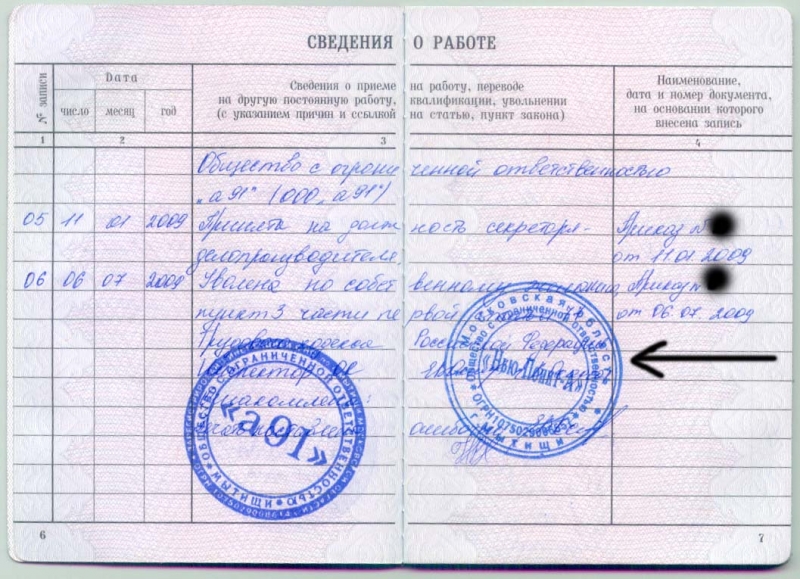 СВЕДЕНИЯ О РАБОТЕ
№ записи
Дата
число
месяц
год
Сведения о приеме на работу, переводе
на другую постоянную работу, квалификации, увольнении
(с указанием причин и ссылкой на статью, пункт закона)
Наименование,
дата и номер документа,
на основании которого
внесена запись
1 2 3 4
Общество с ограниченной ответственностью
„а 91" (ООО „а 91")
05 11 01 2009 Принята на должность секретаря- Приказ №
делопроизводителя. от 11.01.2009
06 06 07 2009 Уволена по собственному желанию, Приказ №
пункт 3 части первой от 06.07.2009
Трудового кодекса Российской Федерации
ОБЩЕСТВО С ОГРАНИЧЕННОЙ ОТВЕТСТВЕННОСТЬЮ
«а 91»
МЫТИЩИ
Московская область
Общество с ограниченной ответственностью
«Нью-Поинт-А»
г. МЫТИЩИ
6
7